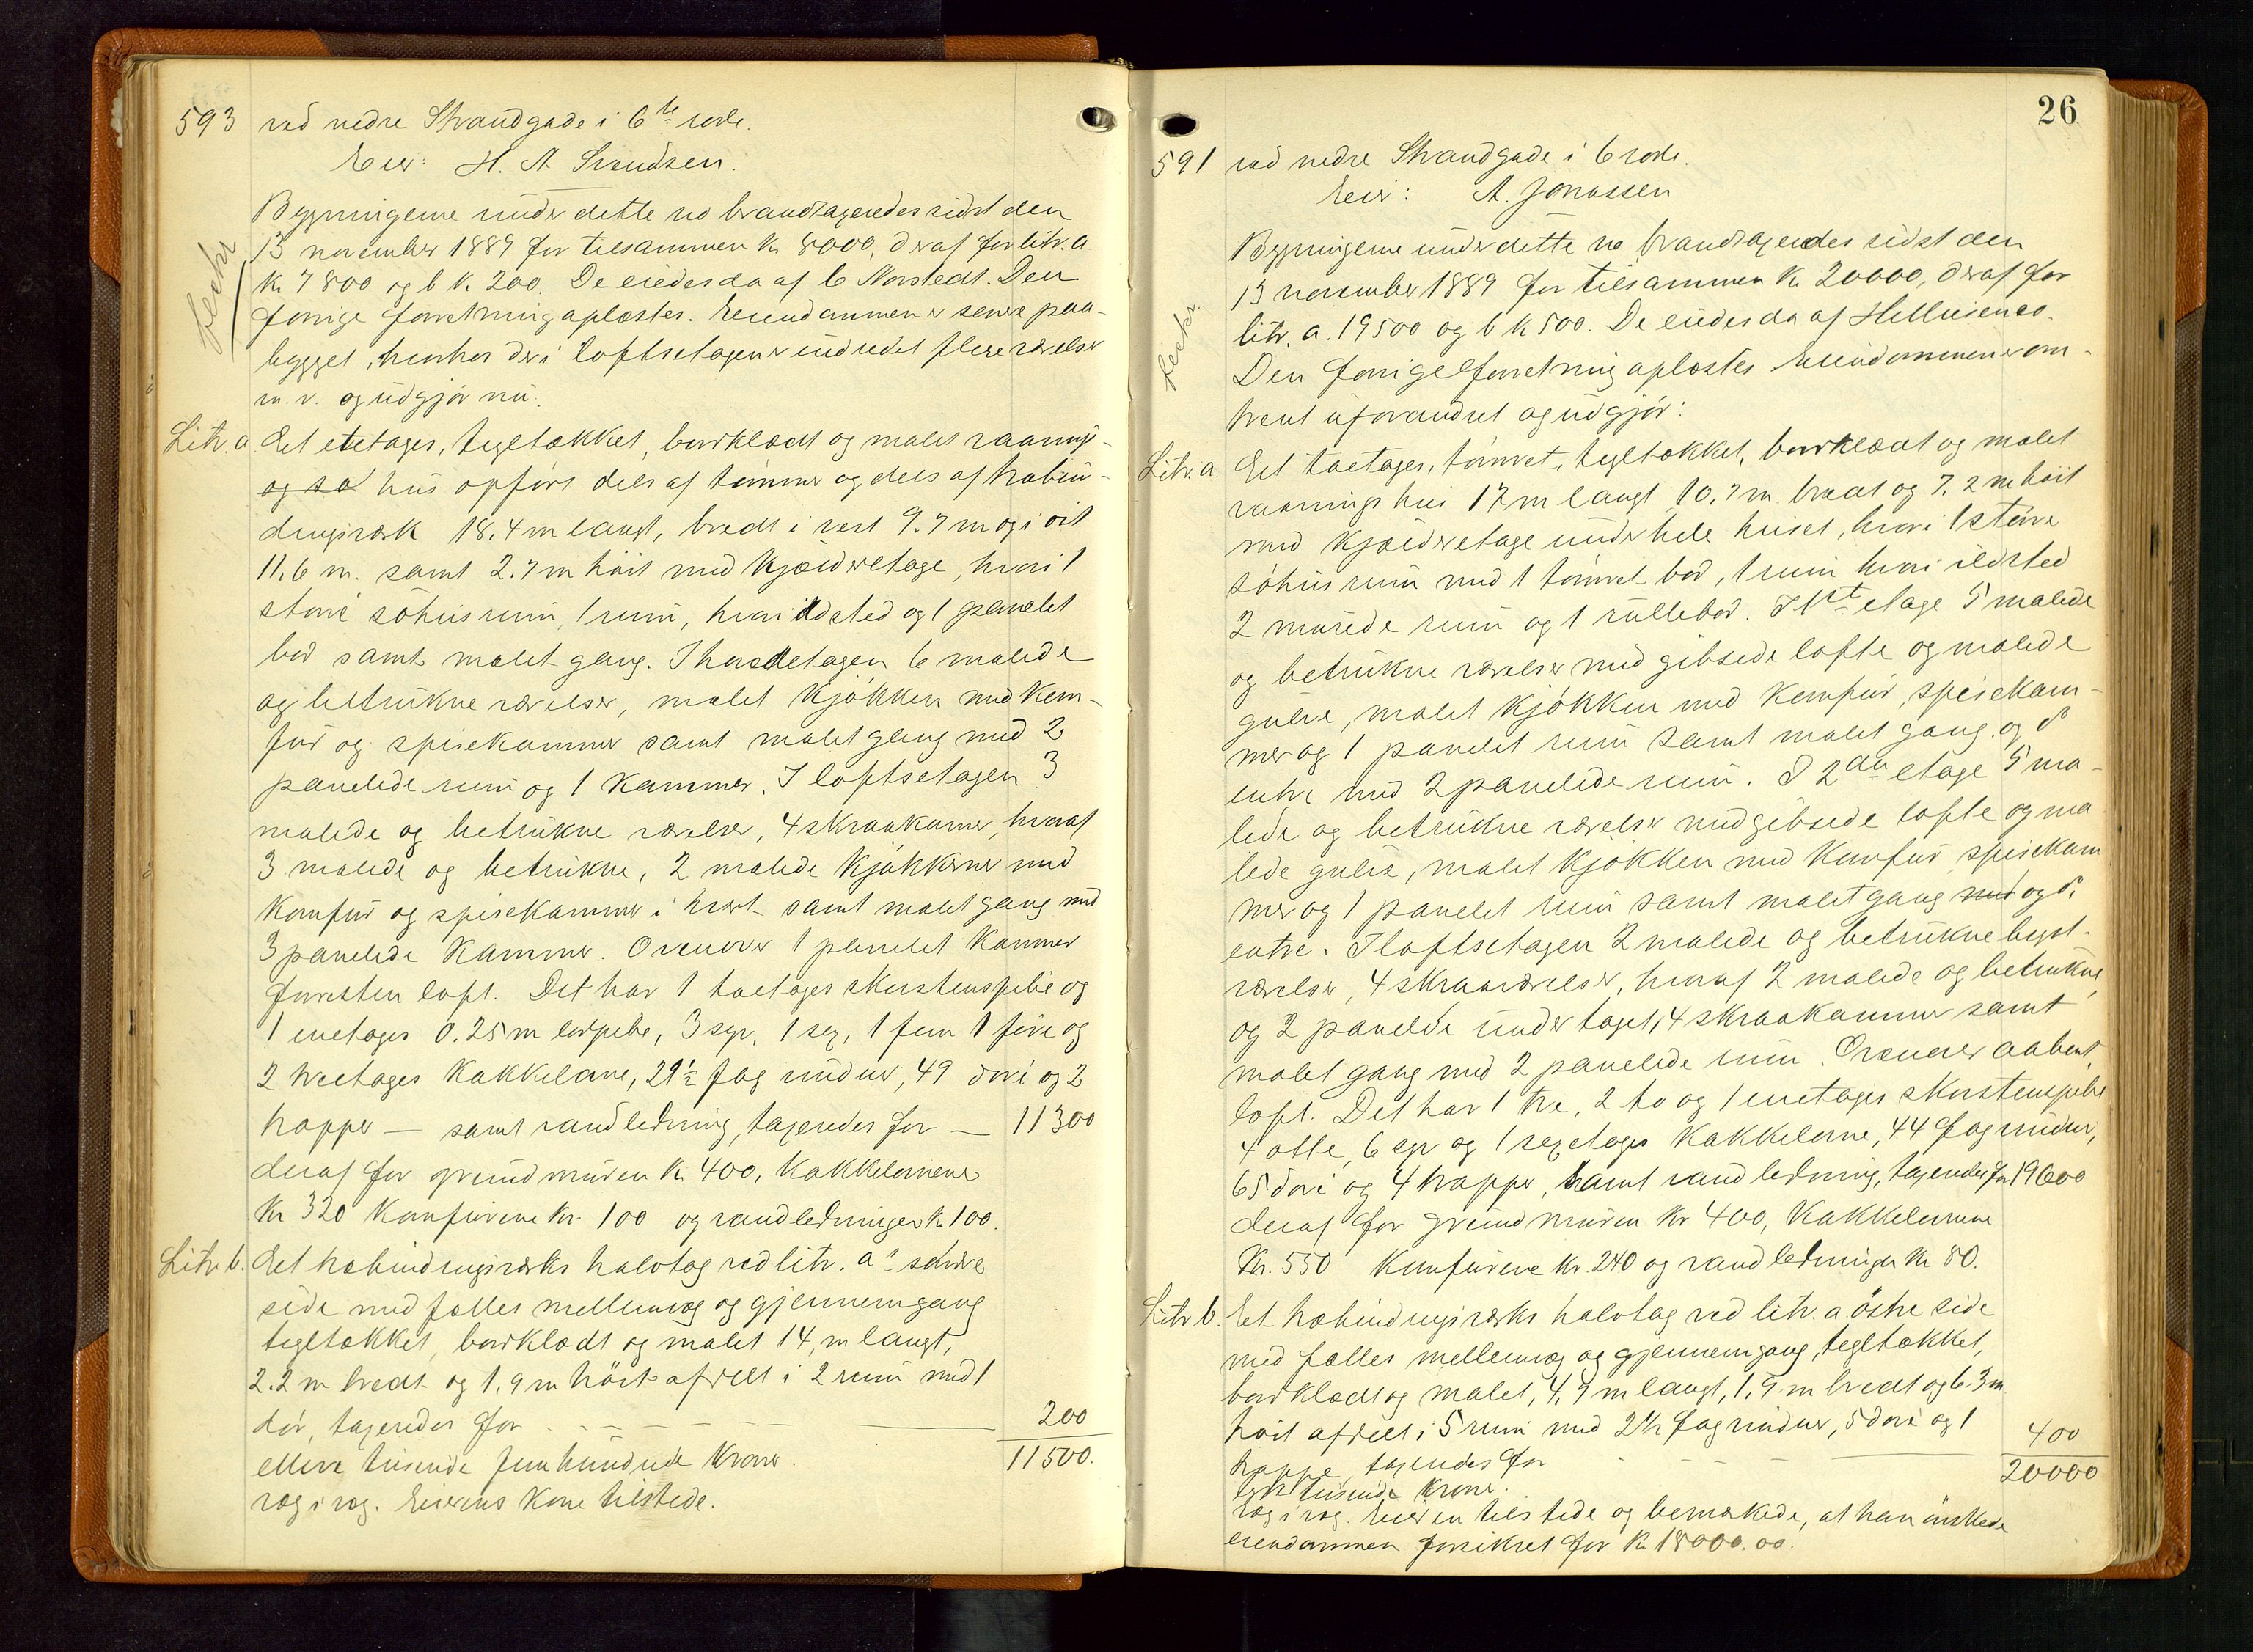 593 ved nedre Strandgade i 6te rode.
Eier: H. A. Svendsen.
Bygningerne under dette no brandtaxeredes sidst den
13 november 1889 for tilsammen kr 8000, deraf for litr. a
kr 7800 og b kr. 200. De eiedes da af C Norstedt. Den
forrige forretning oplæstes. Eiendommen er senere paa-
bygget, hvorhos der i loftsetagen er indredet flere værelser
m. v. og udgjør nu:
Litr. a. Et etetages, tegltækket, bordklædt og malet vaanings-
og sø hus opført dels af tømmer og dels af thobin-
dingsværk 18.4 m langt, bredt i vest 9.7 m og i øst
11.6 m. samt 2.7 m høit med kjælderetage, hvori 1
større søhusrum, 1 rum, hvori ildsted og 1 panelet
bod samt malet gang. I hovedetagen 6 malede
og betrukne værelser, malet kjøkken med kom-
fur og spisekammer samt malet gang med 2
panelede rum og 1 kammer. I loftsetagen 3
malede og betrukne værelser, 4 skraakamre, hvoraf
3 malede og betrukne, 2 malede kjøkkener med
komfur og spisekammer i hvert samt malet gang med
3 panelede kammer. Ovenover 1 panelet kammer
forresten loft. Det har 1 toetages skorstenspibe og
1 enetages 0.25 m lerpibe, 3 syv, 1 sex, 1 fem 1 fire og
2 treetages kakkelovne, 29½ fag vinduer, 49 døre og 2
trapper — samt vandledning, taxeredes for — 11300
deraf for grundmuren kr 400, kakkelovnene
kr 320 komfurene kr. 100 og vandledningen kr 100.
Litr. b. Et thobindingsværks halvtag ved litr. a's søndre
side med fælles mellemvæg og gjennemgang
tegltækket, bordklædt og malet 14, m langt,
2.2 m bredt og 1.9 m høit afdelt i 2 rum med 1
dør, taxeredes for — — — — 200
elleve tusende fem hundrede kroner. 11500.
væg i væg. Eierens kone tilstede.
26
591 ved nedre Strandgade i 6 rode.
Eier: A. Jonassen
Bygningerne under dette no brandtaxeredes sidst den
13 november 1889 for tilsammen kr 20000, deraf for
litr. a. 19500 og b kr 500. De eiedes da af Helliesen co.
Den forrige forretning oplæstes Eiendommen er om-
trent uforandret og udgjør:
Litr. a. Et toetages, tømret, tegltækket, bordklædt og malet
vaaningshus 17 m langt 10.7 m. bredt og 7.2 m høit
med kjælderetage under hele huset, hvori 1 større
søhusrum med 1 tømret bod, 1 rum hvori ildsted
2 murede rum og 1 rullebod. I 1st etage 5 malede
og betrukne værelser med gibsede lofte og malede
gulve, malet kjøkken med komfur, spisekam-
mer og 1 panelet rum samt malet gang og do
entre med 2 panelede rum. I 2den etage 5 ma-
lede og betrukne værelser med gibsede lofte og ma-
lede gulve, malet kjøkken med komfur, spisekam
mer og 1 panelet rum samt malet gang med og do
entre. I loftsetagen 2 malede og betrukne kvist-
værelser, 4 skraaværelser, hvoraf 2 malede og betrukne,
og 2 panelede under taget, 4 skraakammer samt
malet gang med 2 panelede rum. Ovenover aabent
loft. Det har 1 tre, 2 to og 1 enetages skorstenspibe
4 otte, 6 syv og 1 sexetages kakkelovne, 44 fag vinduer,
65 døre og 4 trapper, samt vandledning, taxeredes for 19600
deraf for grundmuren kr 400, kakkelovnene
kr. 550 komfurene kr. 240 og vandledningen kr 80.
Litr b. Et thobindingsværks halvtag ved litr. a østre side
med fælles mellemvæg og gjennemgang, tegltækket,
bordklædt og malet, 4,9 m langt, 1,9 m bredt og 6.3 m
høit afdelt i 5 rum med 2½ fag vinduer, 5 døre og 1
trappe, taxeredes for — — — — 400
tyve tusende kroner. 20000
væg i væg. Eieren tilstede og bemærkede, at han ønskede
eiendommen forsikret for kr 18000.00.